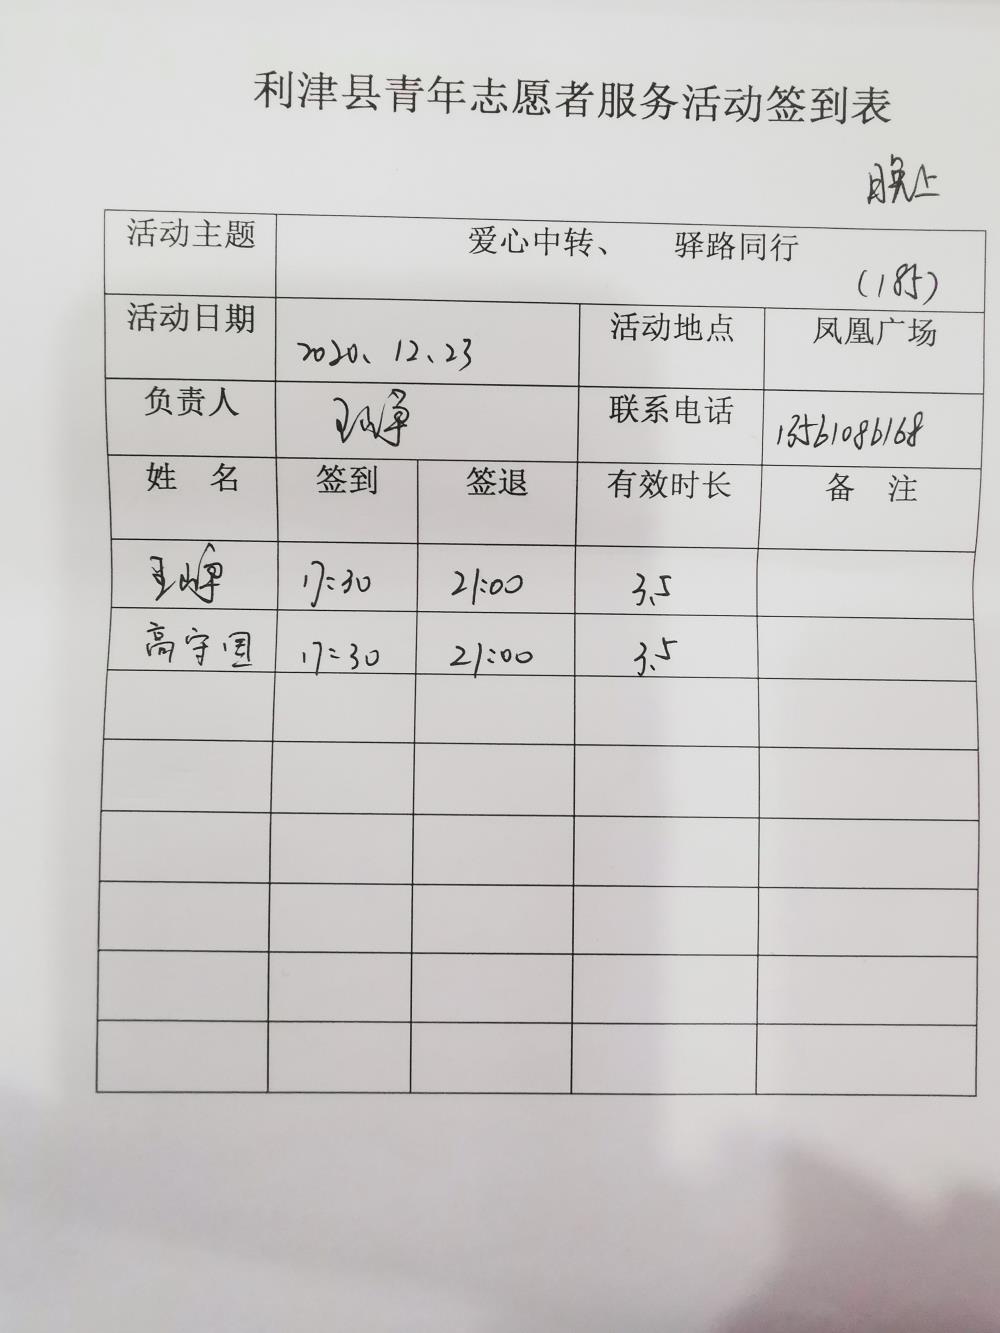 利津县青年志愿者服务活动签到表
晚上
活动主题 爱心中转、 驿路同行
(185)
活动日期 2020、12、23 活动地点 凤凰广场
负责人 王 联系电话 13561086168
姓 名 签到 签退 有效时长 备 注
王 17:30 21:00 3.5
高守国 17:30 21:00 3.5